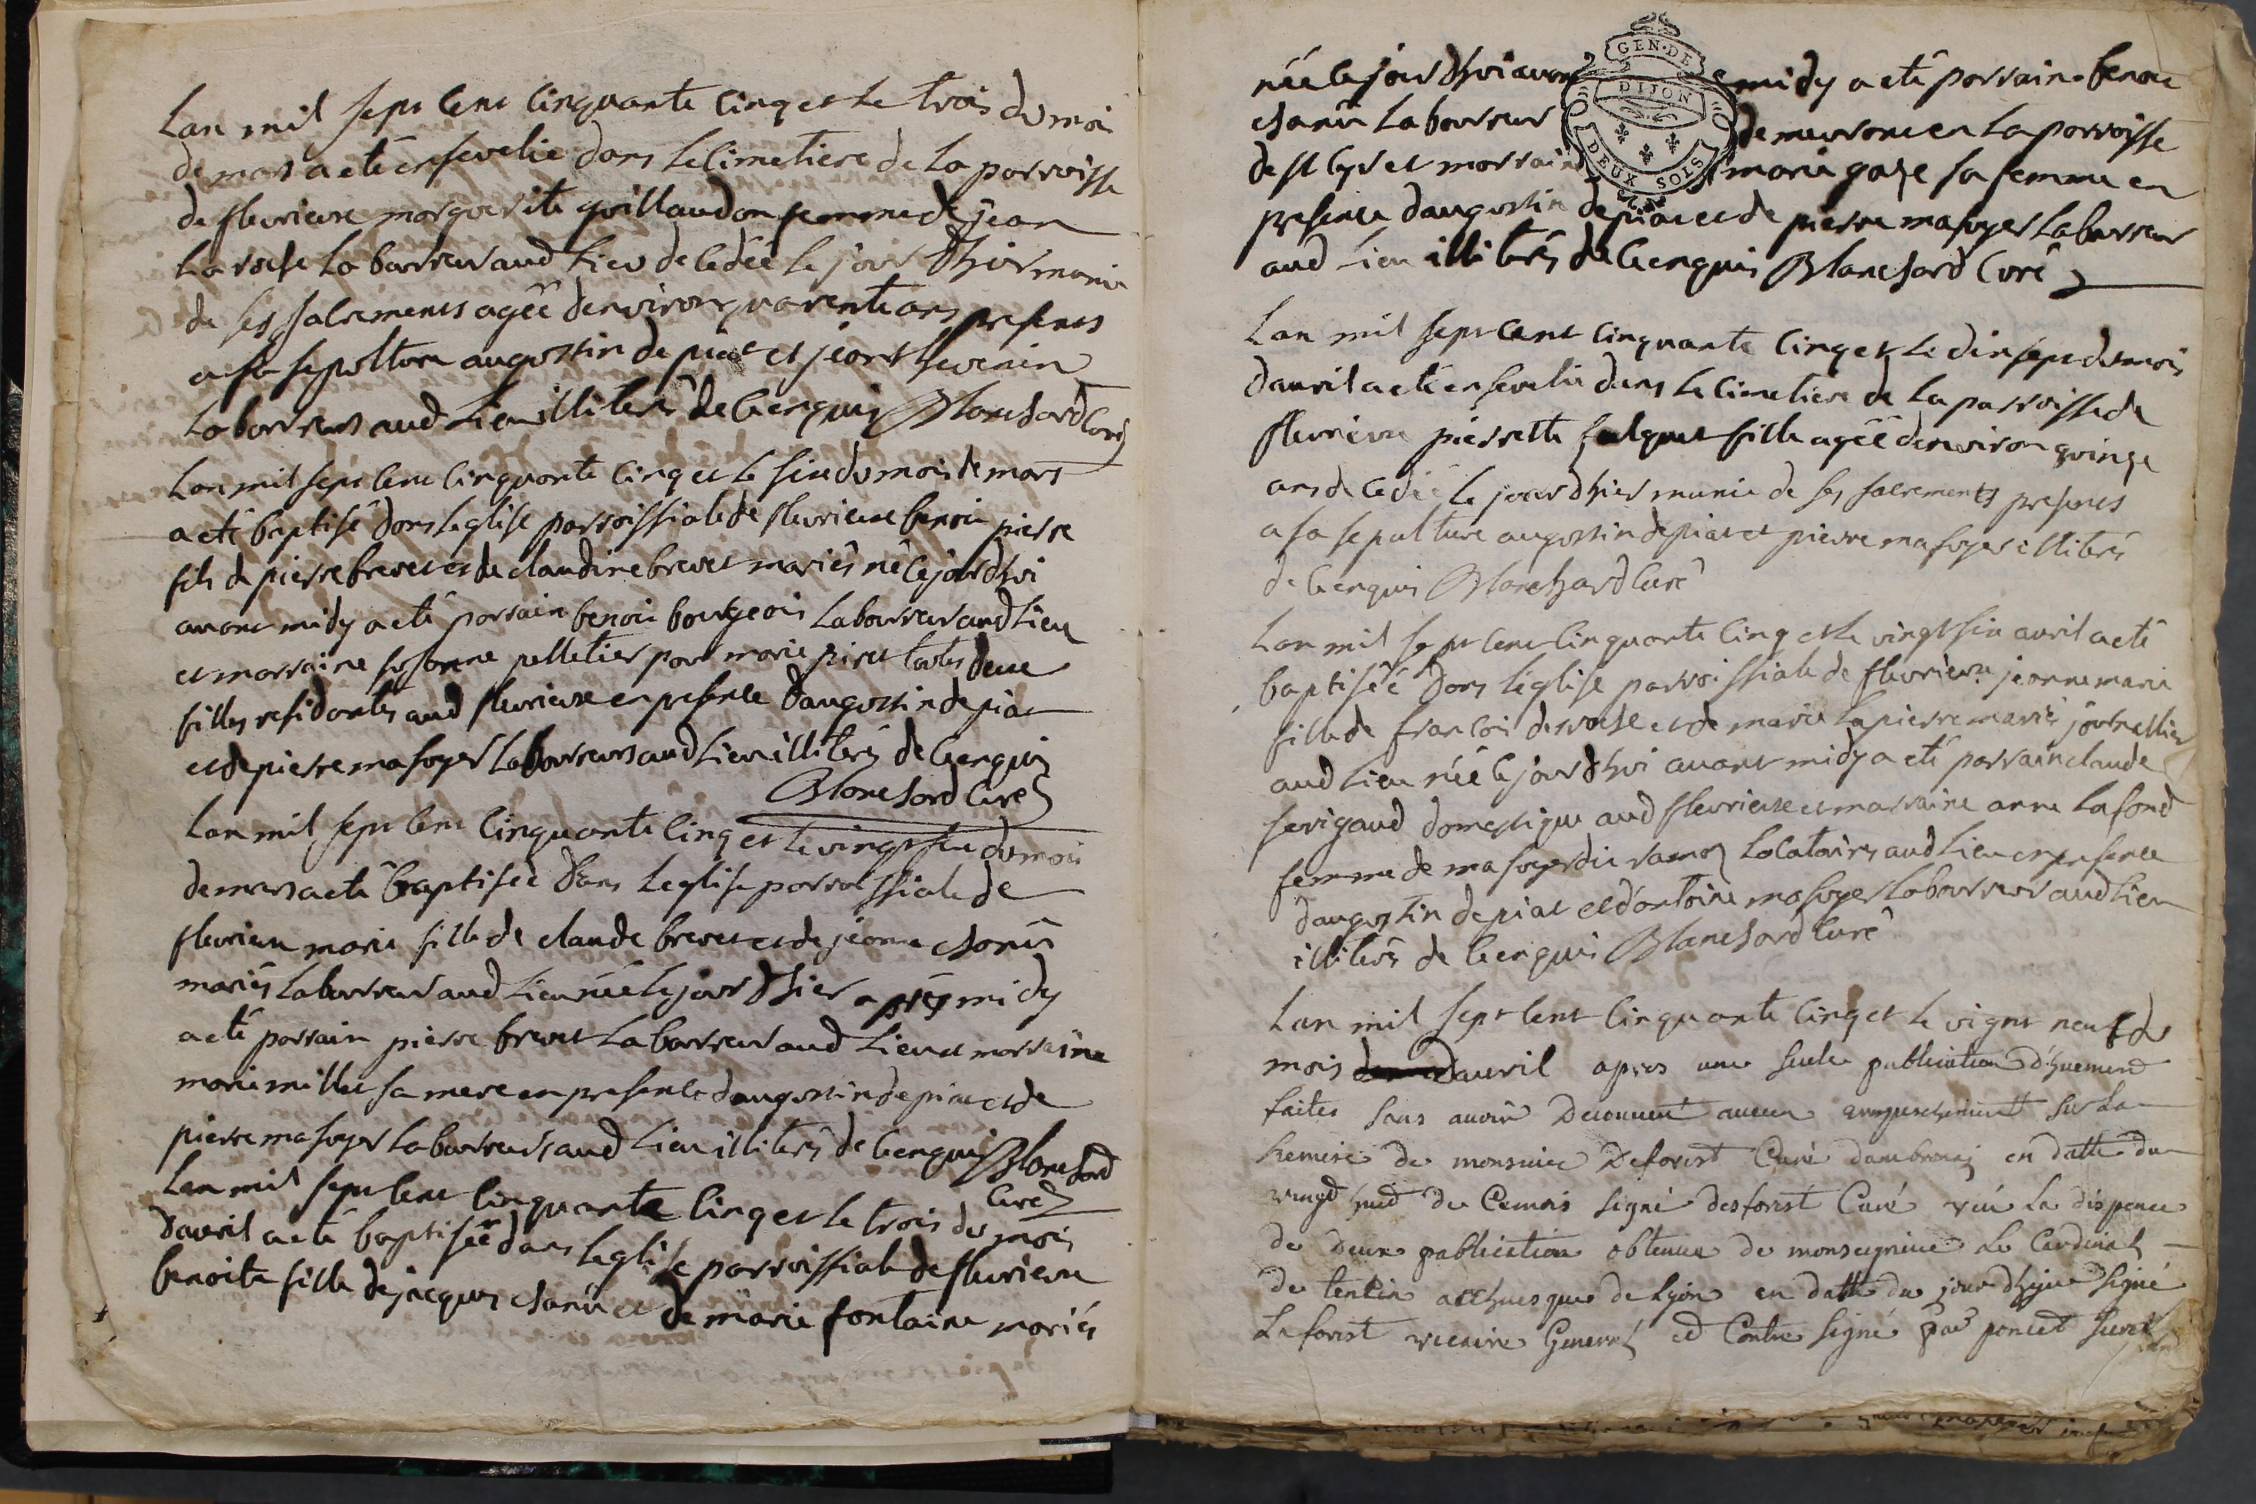 Lan mil sept cent cinquante cinq et le trois du moi
de mars a eté ensevelie dans le cimetiere de la parroisse
de fleurieux marguerite guillaudon femme de jean
laroche laboureur aud lieu decedée le jour dhier munie
de ses sacrements agée denviron quarente ans presents
a sa sepolture augostin depiat et jean thevenin
laboureurs aud lieu illiterés de ce enquis Blanchard Curé
Lan mil sept cent cinquante cinq et le six du mois de mars
a eté baptisé dans leglise parroissiale de fleurieux benoit pierre
fils de pierre brevet et de claudine brevet mariés né ce jourdhui
avant midy a eté parrain benoit bourgeois laboureur aud lieu
et marraine susanne pelletier pour marie piret toutes deux
filles residantes aud fleurieux en presence daugostin depiat
et de pierre mafoyer laboureurs aud lieu illiterés de ce enquis
Blanchard Curé
Lan mil sept cent cinquante cinq et le vingt six du mois
de mars a eté baptisée dans leglise parroissiale de
fleurieux marie fille de claude brevet et de jeanne chanu
mariés laboureur aud lieu née le jour dhier aprés midy
a eté parrain pierre brevet laboureur aud lieu et marraine
marie millet sa mere en presence daugostin depiat et de
pierre mafoyer laboureurs aud lieu illiterés de ce enquis Blanchard
Curé
Lan mil sept cent cinquante cinq et le trois du mois
davril a eté baptisée dans leglise parroissiale de fleurieux
benoite fille de jacques chanu et de marie fontaine mariés
née ce jourdhui avant midy a eté parrain benoit
GEN. DE
DIJON
DEUX SOLS
chanu laboureur demeurant en la parroisse
de st cyr et marraine marie gaze sa femme en
presence daugostin depiat et de pierre mafoyer laboureur
aud lieu illiterés de ce enquis Blanchard Curé
Lan mil sept cent cinquante cinq et le dix sept du mois
davril a eté ensevelie dans le cimetiere de la parroisse de
fleurieux pierrette fille agée denviron quinze
ans decedée le jour dhier munie de ses sacrements presents
a sa sepulture augostin depiat et pierre mafoyer illiterés
de ce enquis Blanchard Curé
Lan mil sept cent cinquante cinq et le vingt six avril a eté
baptisée dans léglise parroissiale de fleurieux jeanne marie
fille de francois desroche et de marie lapierre mariés journallier
aud lieu née ce jourdhui avant midy a eté parrain claude
serigaud domestique aud fleurieux et marraine anne lafond
femme de mafoyer dit ramoz locataires aud lieu en presence
daugostin depiat et dantoine mafoyer laboureur aud lieu
illiterés de ce enquis Blanchard Curé
Lan mil sept cent cinquante cinq et le vignt neuf du
mois davril apres une seule publication
faites sans avoir decouvert aucun sur la
remise de monsieur Deforest Curé en datte du
vingt huit de ce mois signé desforest Curé veu la dispence
de deux publication obtenue de monseigneur le Cardinal
de tencin archevesque de lyon en datte du jour dhyer signé
Laforest viccaire General et Contre signé par poncet